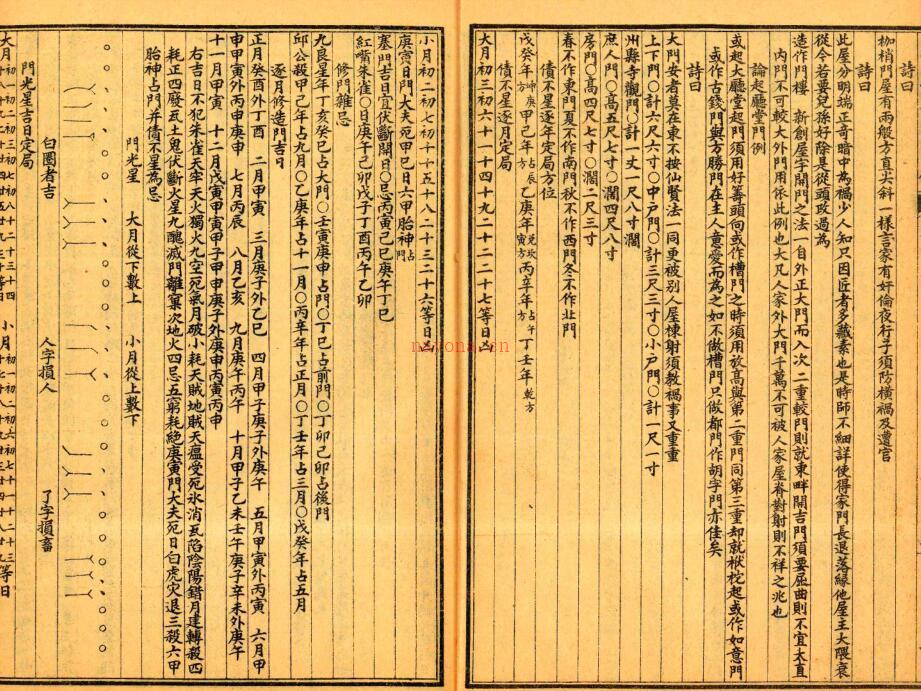 枷梢門屋有兩般方直尖斜一樣言家有奸倫夜行子須防橫禍及遭官
詩曰
此屋分明端正奇暗中為禍少人知只因匠者多藏素也是時師不細詳使得家門長退落緣他屋主大隈衰
從今若要兒孫好除是從頭攺過為
造作門樓　新創屋宇開門之法一自外正大門而入次二重較門則就東畔開吉門須要屈曲則不宜大直
內門不可較大外門用依此例也大凡人家外大門千萬不可被人家屋脊對射則不祥之兆也
論起廳堂門例
或起大廳堂起門須用好籌頭向或作槽門之時須用放高與第二重門同第三重却就栿柁起或作如意門
或作古錢門與方勝門在主人意愛而為之如不做槽門只做都門作胡字門亦佳矣
詩曰
大門安者莫在東不按仙賢法一同更被別人屋棟射須教禍事又重重
上下門〇計六尺六寸〇中戶門〇計三尺三寸〇小戶門〇計一尺一寸
州縣寺觀門〇計一丈一尺八寸濶
庶人門〇高五尺七寸〇濶四尺八寸
房門〇高四尺七寸〇濶二尺三寸
春不作東門夏不作南門秋不作西門冬不作北門
債不星逐年定局方位
戊癸年坤庚方甲己年占辰方乙庚年兌坎寅方丙辛年占午方丁壬年乾方
債不星逐月定局
大月初三初六十一十四十九二十二二十七等日凶
小月初二初七初十十五十八二十三二十六等日凶
庚寅日門大夫死甲巳日六甲胎神占門
塞門吉日宜伏斷閉日〇忌丙寅己巳庚午丁巳
紅嘴朱雀〇日庚午己卯戊子丁酉丙午乙卯
修門雜忌
九良星年丁亥癸巳占大門〇壬寅庚申占門〇丁巳占前門〇丁卯己卯占後門
邱公殺甲己年占九月〇乙庚年占十一月〇丙辛年占正月〇丁壬年占三月〇戊癸年占五月
逐月修造門吉日
正月癸酉外丁酉　二月甲寅　三月庚子外乙巳　四月甲子庚子外庚午　五月甲寅外丙寅　六月甲
申甲寅外丙申庚申　七月丙辰　八月乙亥　九月庚午丙午　十月甲子乙未壬午庚子辛未外庚午
十一月甲寅　十二月戊寅甲寅甲子甲申庚子外庚申丙寅丙申
右吉日不犯朱雀天牢天火獨火九空死氣月破小耗天賊地賊天瘟受死氷消瓦陷陰陽錯月建轉殺四
耗正四廢九土鬼伏斷火星九醜滅門離窠次地火四忌五窮耗絕庚寅門大夫死日白虎灾退三殺六甲
胎神占門并債不星為忌
門光星　大月從下數上　小月從上數下
白圈者吉　人字損人　丫字損畜
門光星吉日定局